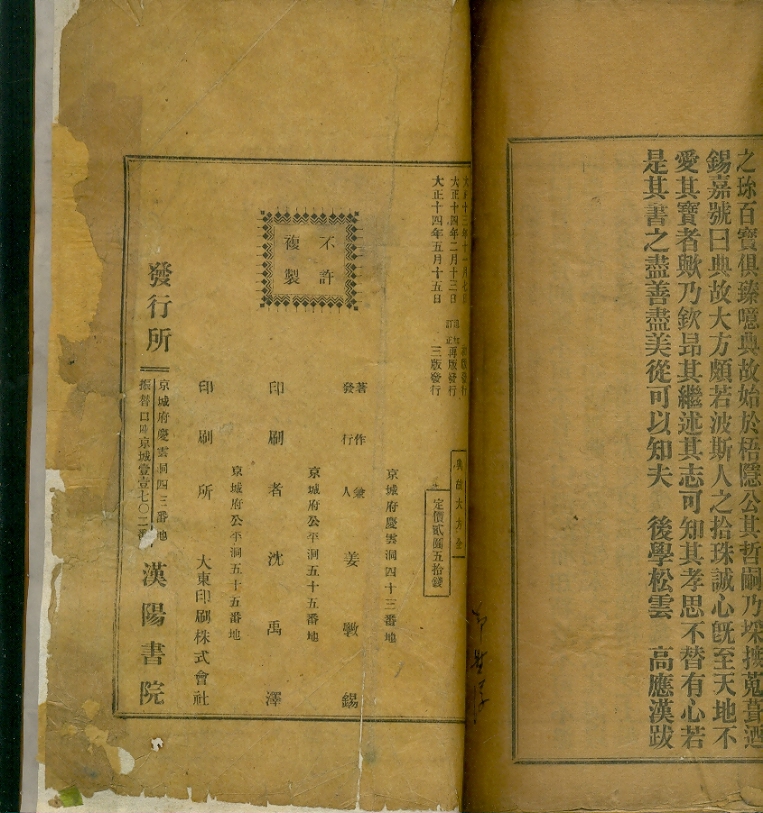 之珍百寶俱臻噫典故始於梧隱公其哲嗣乃埰摭蒐葺迺
錫嘉號曰典故大方頗若波斯人之拾珠誠心旣至天地不
愛其寶者歟乃欽昂其繼述其志可知其孝思不替有心若
是其書之盡善盡美從可以知夫 後學松雲 高應漢跋
大正十三年十一月七日 初版發行
大正十四年二月十三日 增加訂正再版發行
大正十四年五月十五日 三版發行
典故大方全
定價貳圓五拾錢
不許
複製
京城府慶雲洞四十三番地
著作兼
發行人 姜斅錫
京城府公平洞五十五番地
印刷者 沈禹澤
京城府公平洞五十五番地
印刷所 大東印刷株式會社
發行所
京城府慶雲洞四三番地
振替口座京城壹壹七〇二番
漢陽書院